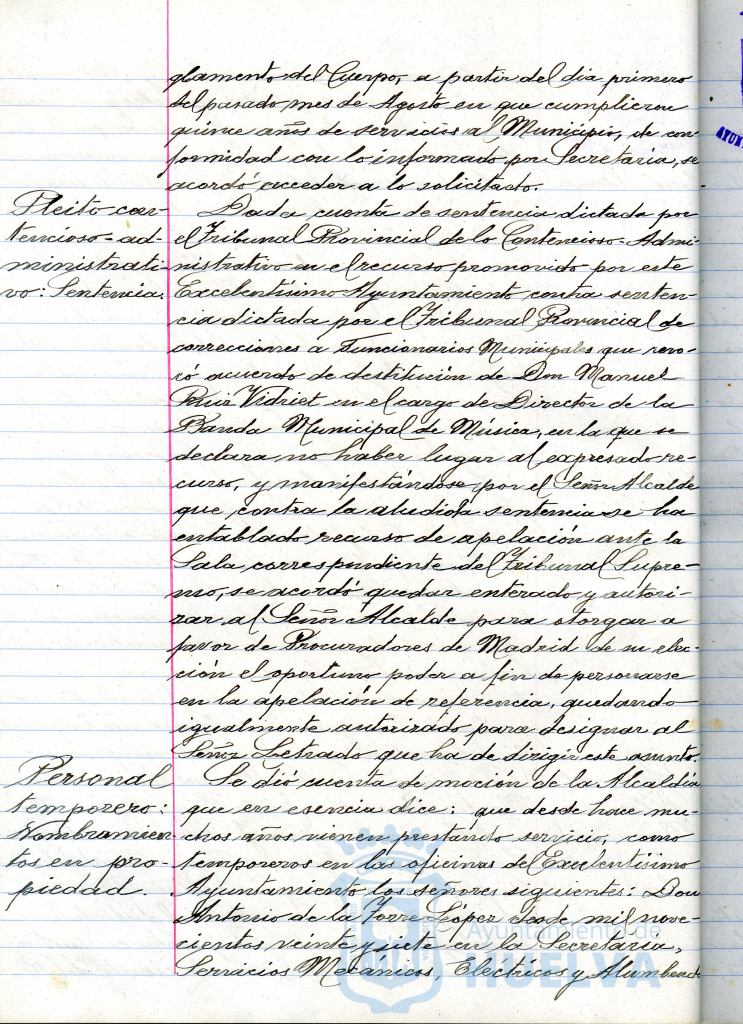 glamento del Cuerpo, a partir del dia primero
del pasado mes de Agosto en que cumplieron
quince años de servicios al Municipio, de con
formidad con lo informado por Secretaría, se
acordó acceder a lo solicitado.
Pleito con-
tencioso-ad-
ministrati-
vo: Sentencia.
Dada cuenta de sentencia dictada por
el Tribunal Provincial de lo Contencioso-Admi-
nistrativo en el recurso promovido por este
Excelentísimo Ayuntamiento contra senten-
cia dictada por el Tribunal Provincial de
correcciones a Funcionarios Municipales que revo-
có acuerdo de destitución de Don Manuel
Ruiz Vidriet en el cargo de Director de la
Banda Municipal de Música, en la que se
declara no haber lugar al expresado re-
curso, y manifestándose por el Señor Alcalde
que contra la aludida sentencia se ha
entablado recurso de apelación ante la
Sala correspondiente del Tribunal Supre-
mo, se acordó quedar enterado y autori-
zar al Señor Alcalde para otorgar a
favor de Procuradores de Madrid de su elec-
ción el oportuno poder a fin de personarse
en la apelación de referencia, quedando
igualmente autorizado para designar al
Señor Letrado que ha de dirigir este asunto.
Personal
temporero:
Nombramien-
tos en pro-
piedad.
Se dió cuenta de moción de la Alcaldía
que en esencia dice: que desde hace mu-
chos años vienen prestando servicio, como
temporeros en las oficinas del Excelentísimo
Ayuntamiento los señores siguientes: Don
Antonio de la Torre López desde mil nove-
cientos veinte y siete en la Secretaria,
Servicios Mecánicos, Eléctricos y Alumbrad
Ayuntamiento de
HUELVA